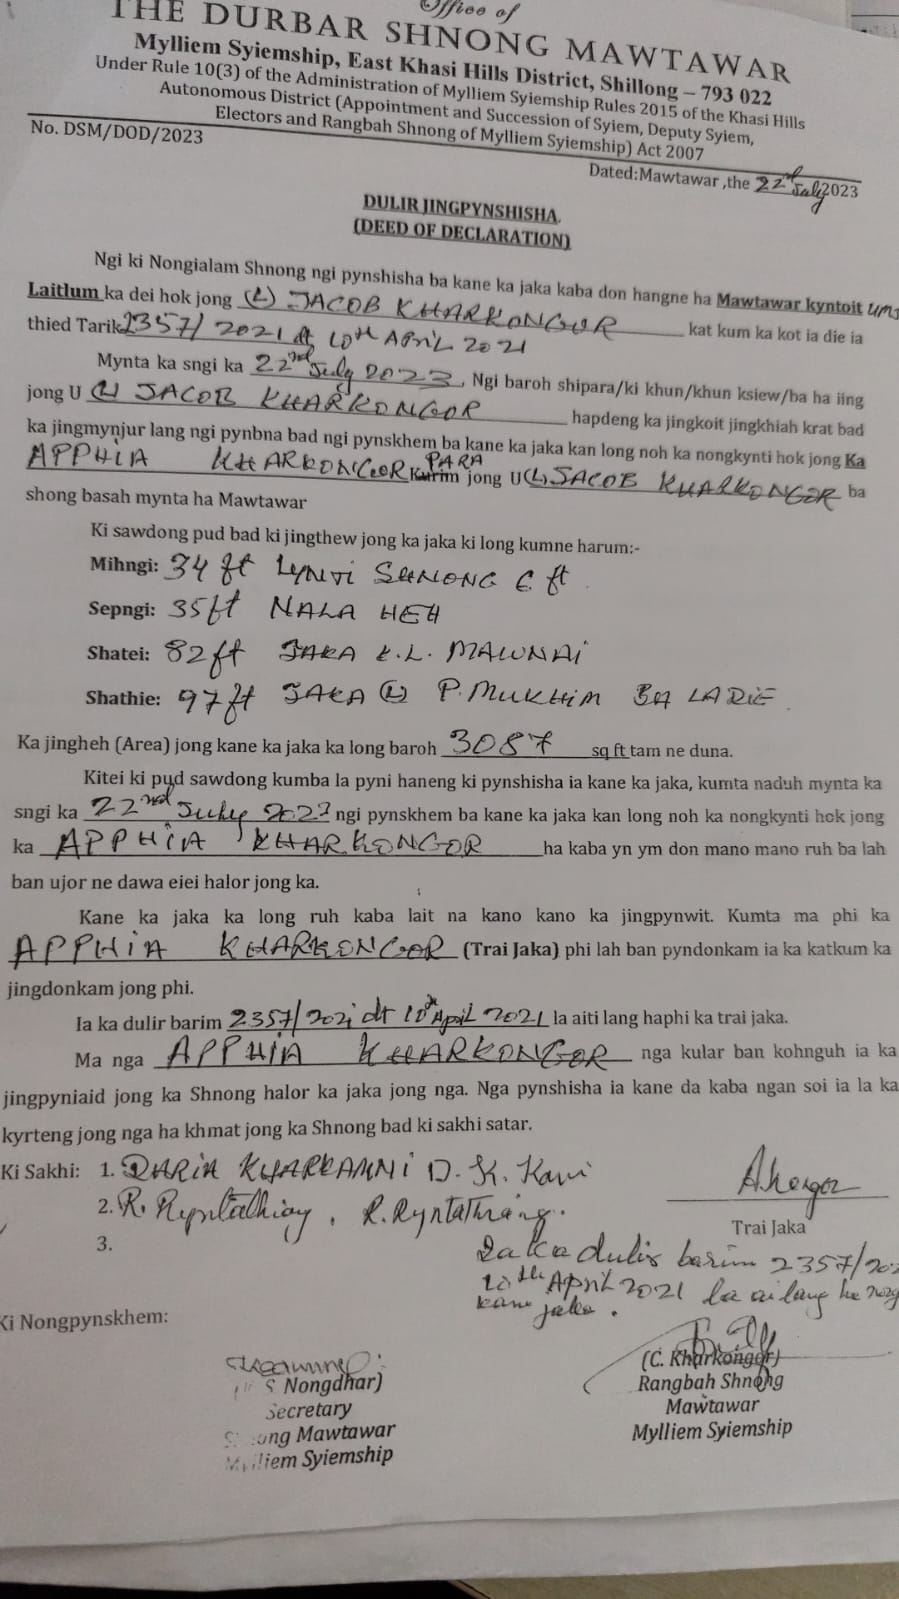 Office of
THE DURBAR SHNONG MAWTAWAR
Mylliem Syiemship, East Khasi Hills District, Shillong – 793 022
Under Rule 10(3) of the Administration of Mylliem Syiemship Rules 2015 of the Khasi Hills
Autonomous District (Appointment and Succession of Syiem, Deputy Syiem,
Electors and Rangbah Shnong of Mylliem Syiemship) Act 2007
No. DSM/DOD/2023
Dated:Mawtawar ,the 22nd July 2023
DULIR JINGPYNSHISHA.
(DEED OF DECLARATION)
Ngi ki Nongialam Shnong ngi pynshisha ba kane ka jaka kaba don hangne ha Mawtawar kyntoit
Laitlum ka dei hok jong (L) JACOB KHARKONGOR kat kum ka kot ia die ia
thied Tarik 2357/2021 dt 10th APRIL 2021
Mynta ka sngi ka 22nd July 2023, Ngi baroh shipara/ki khun/khun ksiew/ba ha iing
jong U (L) JACOB KHARKONGOR hapdeng ka jingkoit jingkhiah krat bad
ka jingmynjur lang ngi pynbna bad ngi pynskhem ba kane ka jaka kan long noh ka nongkynti hok jong Ka
APPHIA KHARKONGOR PARA Kurim jong U (L) JACOB KHARKONGOR ba
shong basah mynta ha Mawtawar
Ki sawdong pud bad ki jingthew jong ka jaka ki long kumne harum:-
Mihngi: 34 ft LYNTI SHNONG 6 ft
Sepngi: 35 ft NALA HEH
Shatei: 82 ft JAKA K.L. MAWNAI
Shathie: 97 ft JAKA (L) P. MUKHIM BA LA DIE
Ka jingheh (Area) jong kane ka jaka ka long baroh 3087 sq ft tam ne duna.
Kitei ki pud sawdong kumba la pyni haneng ki pynshisha ia kane ka jaka, kumta naduh mynta ka
sngi ka 22nd July 2023 ngi pynskhem ba kane ka jaka kan long noh ka nongkynti hok jong
ka APPHIA KHARKONGOR ha kaba yn ym don mano mano ruh ba lah
ban ujor ne dawa eiei halor jong ka.
Kane ka jaka ka long ruh kaba lait na kano kano ka jingpynwit. Kumta ma phi ka
APPHIA KHARKONGOR (Trai Jaka) phi lah ban pyndonkam ia ka katkum ka
jingdonkam jong phi.
Ia ka dulir barim 2357/2021 dt 10th April 2021 la aiti lang haphi ka trai jaka.
Ma nga APPHIA KHARKONGOR nga kular ban kohnguh ia ka
jingpyniaid jong ka Shnong halor ka jaka jong nga. Nga pynshisha ia kane da kaba ngan soi ia la ka
kyrteng jong nga ha khmat jong ka Shnong bad ki sakhi satar.
Ki Sakhi: 1. DARIA KHARKAMNI D. K. Kamni
2. R. Ryntathiang, R. Ryntathiang.
3.
Trai Jaka
Ia ka dulir barim 2357/202
10th April 2021 la ai lang ha
kane jaka.
Ki Nongpynskhem:
S Nongdhar)
Secretary
Mawtawar
Mylliem Syiemship
(C. Kharkongor)
Rangbah Shnong
Mawtawar
Mylliem Syiemship